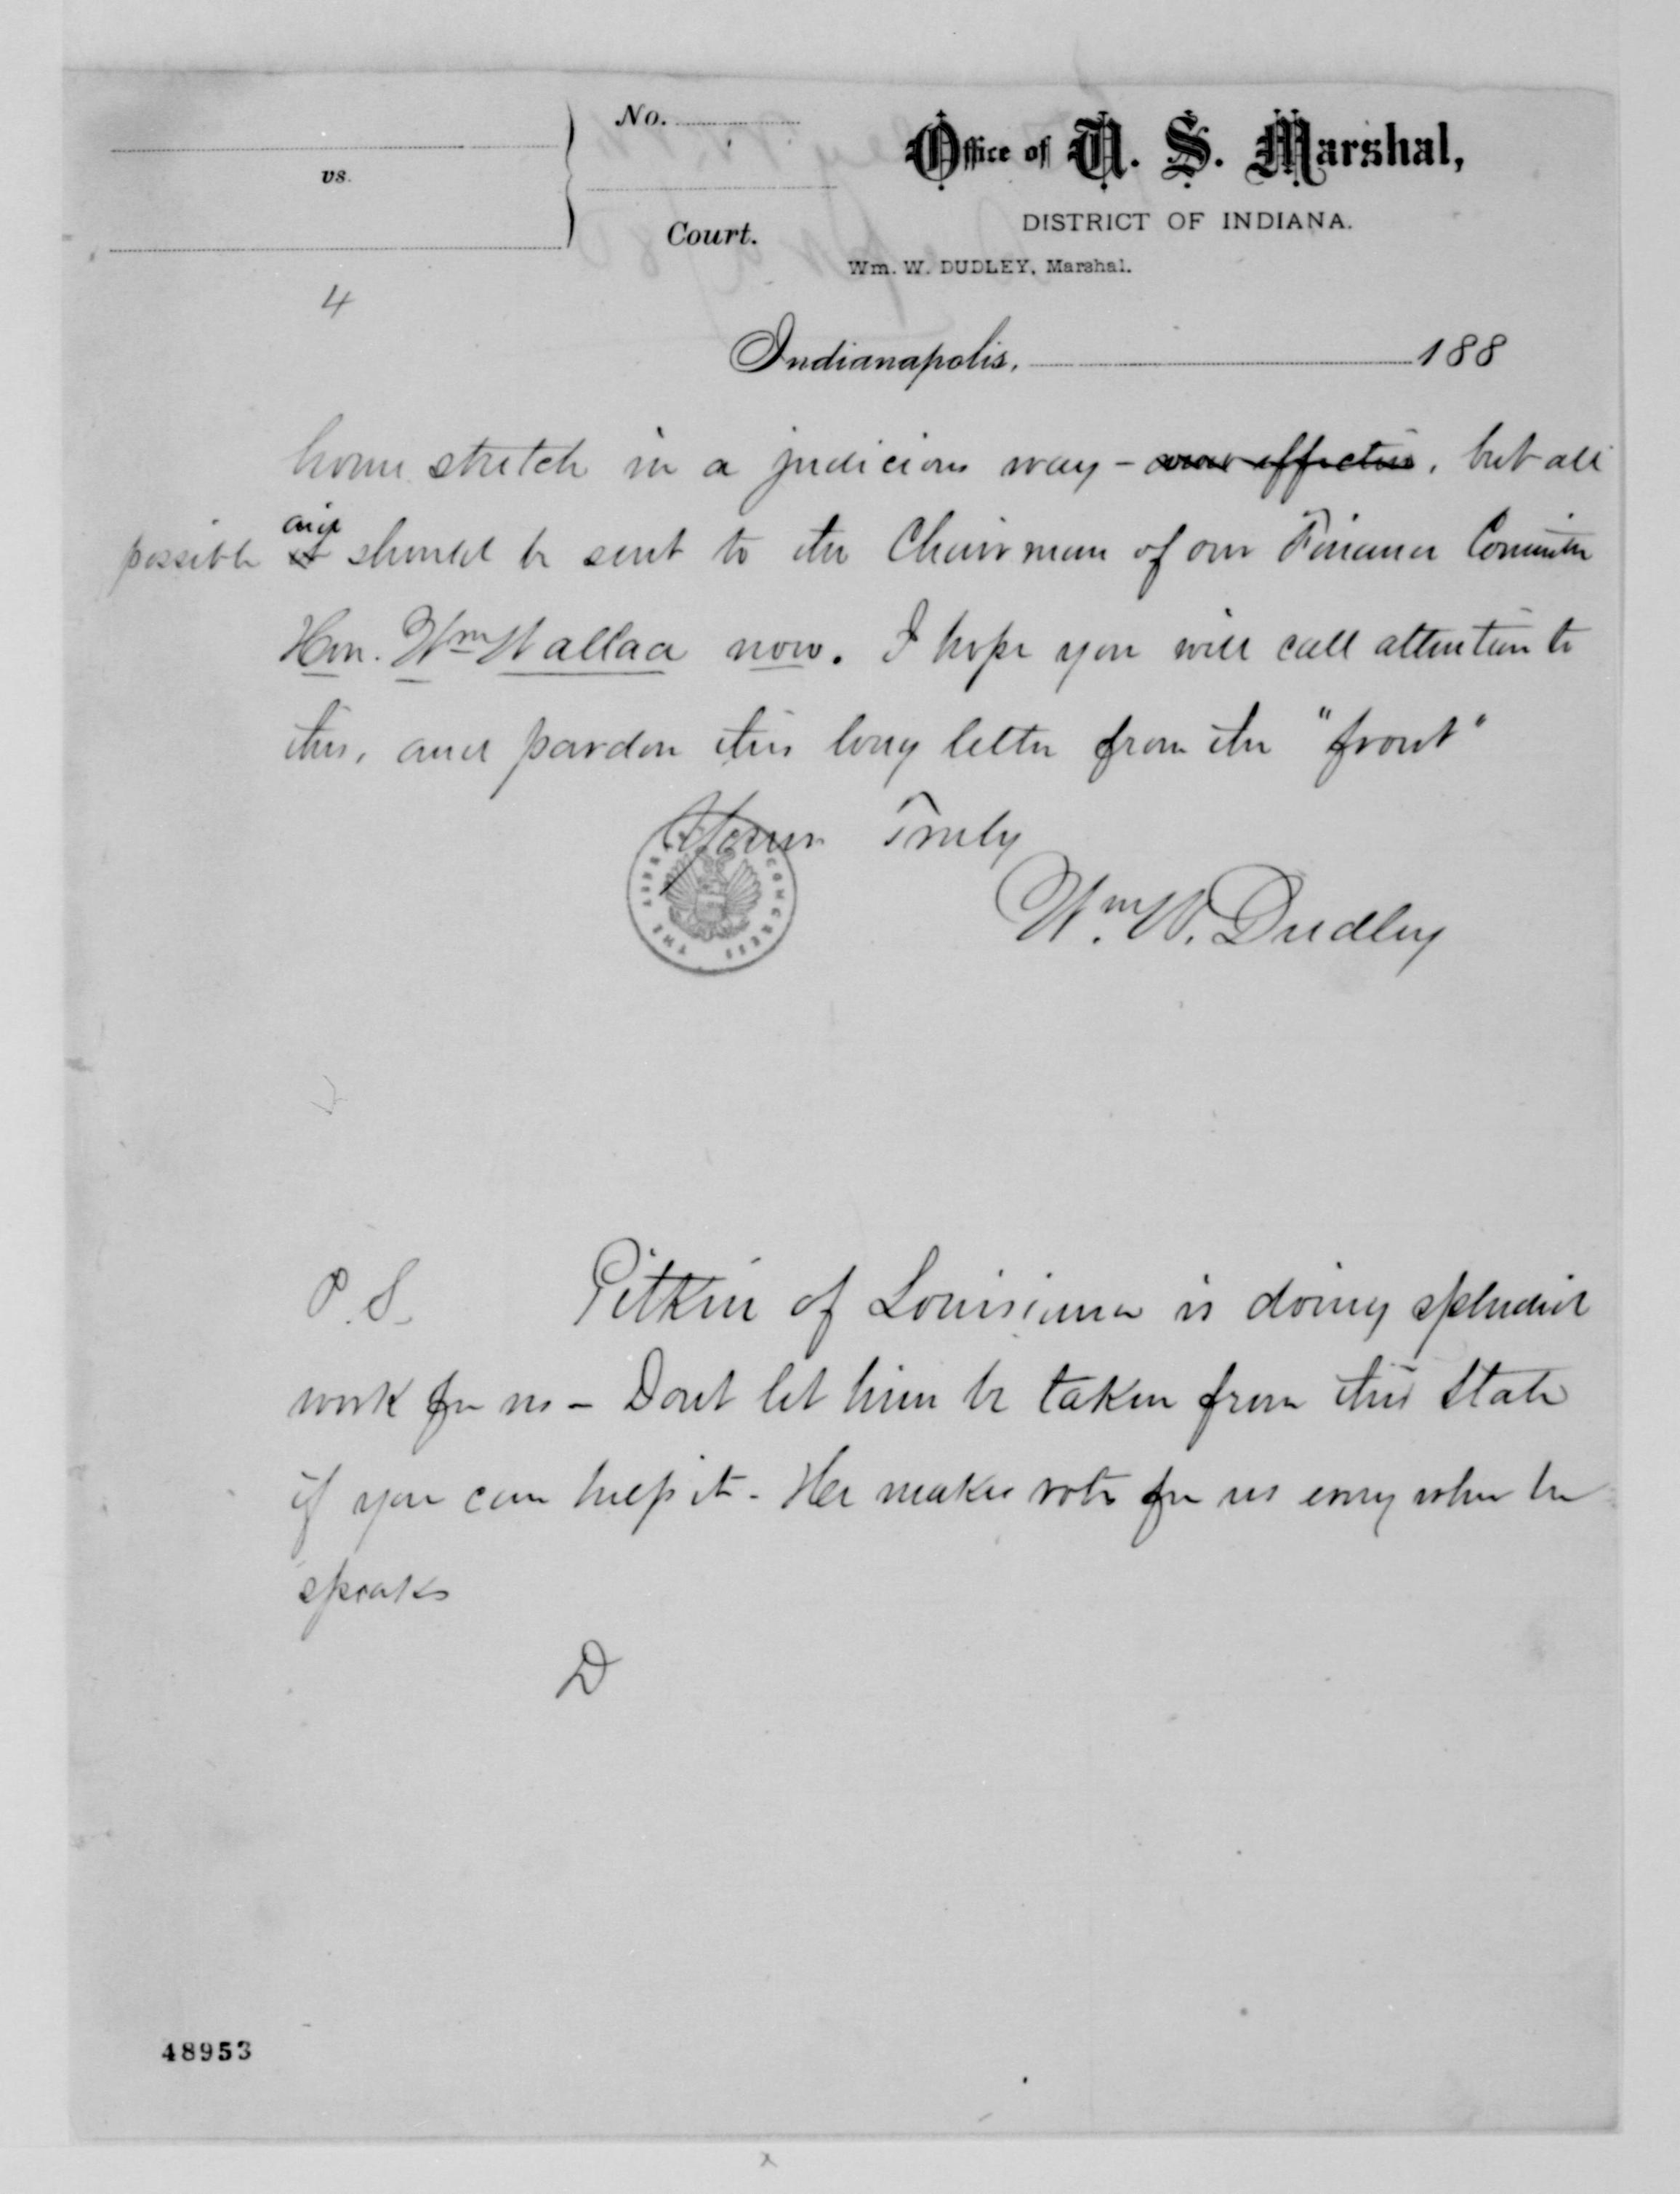 No.
vs.
Court.
Office of U. S. Marshal,
DISTRICT OF INDIANA.
Wm. W. DUDLEY, Marshal.
4
Indianapolis, 188
home stretch in a judicious way - effective, but all
possible aid should be sent to the Chairman of our Finance Committee
Hon. Wm Wallace now. I hope you will call attention to
this, and pardon this long letter from the "front"
Yours Truly
Wm. W. Dudley
THE LIBRARY CONGRESS
P. S. Pitkin of Louisiana is doing splendid
work for us - Dont let him be taken from this State
if you can help it - He makes votes for us every where he
speaks
D
48953